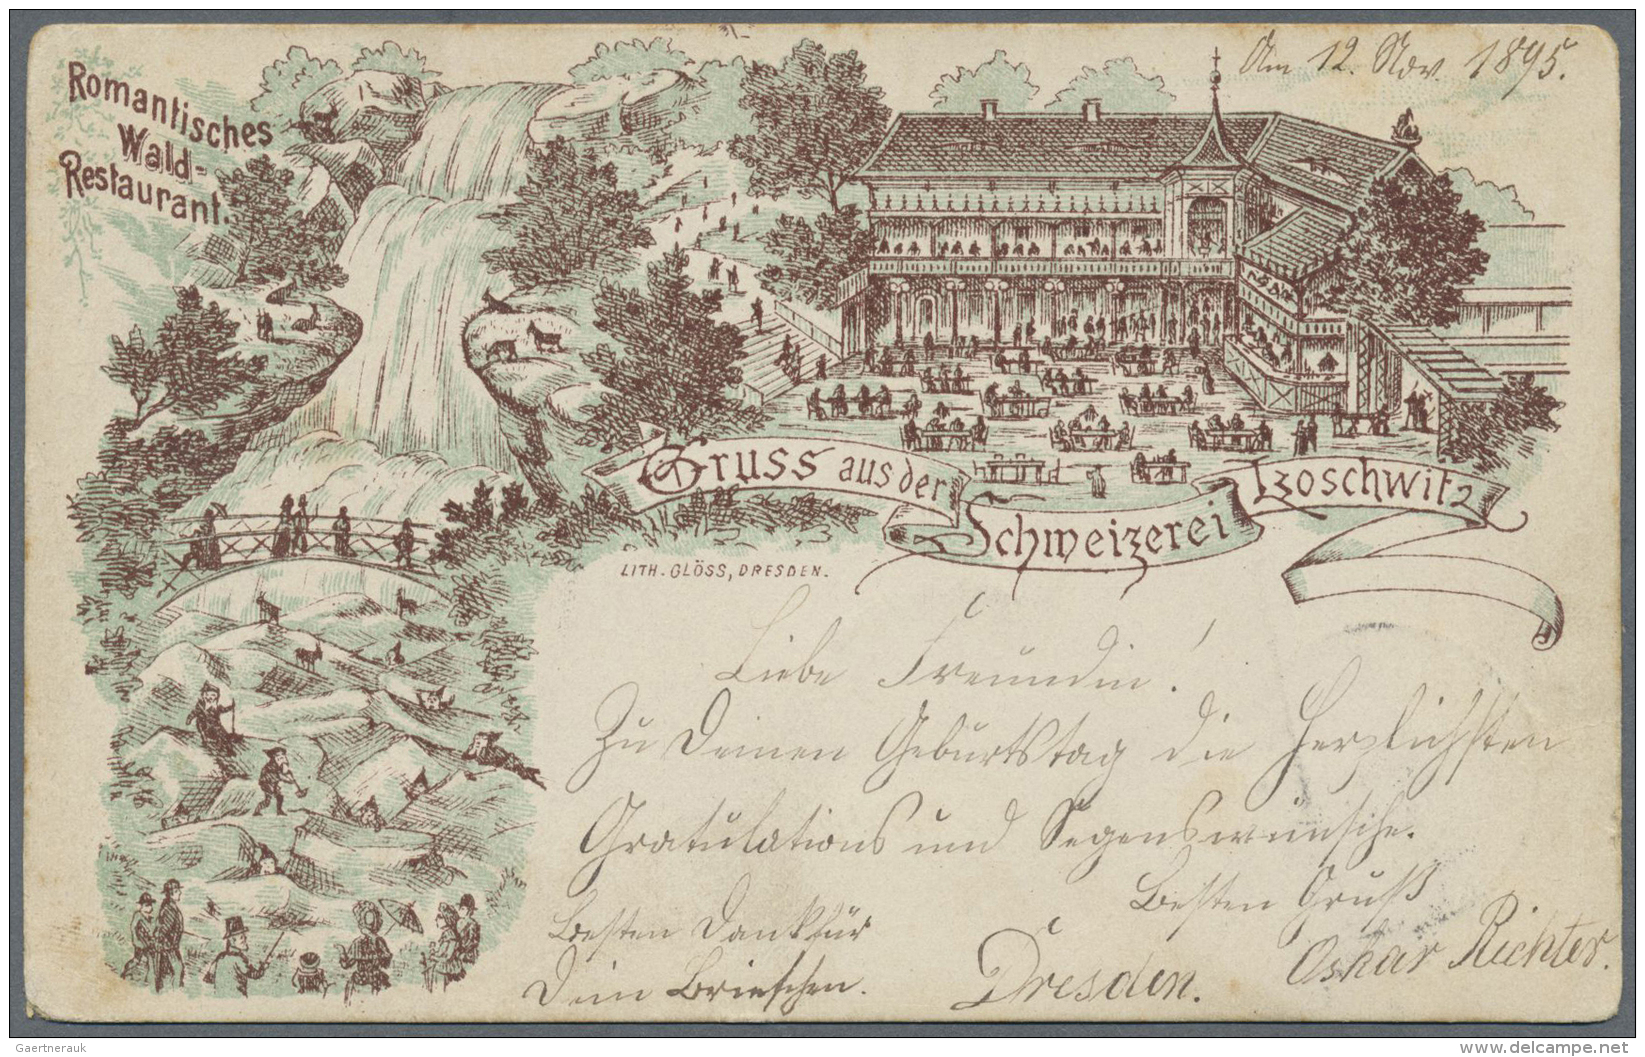 Am 12. Nov. 1895.
Romantisches
Wald-
Restaurant.
Gruss aus der
Schweizerei
Loschwitz
LITH. GLÖSS, DRESDEN.
Liebe Freundin!
Zu Deinen Geburtstag die Herzlichsten
Gratulations und Segenswünsche.
Besten Gruß
Besten Dank für
Dein Briefchen.
Dresden.
Oskar Richter.
Gaertnerauk
delcampe.net